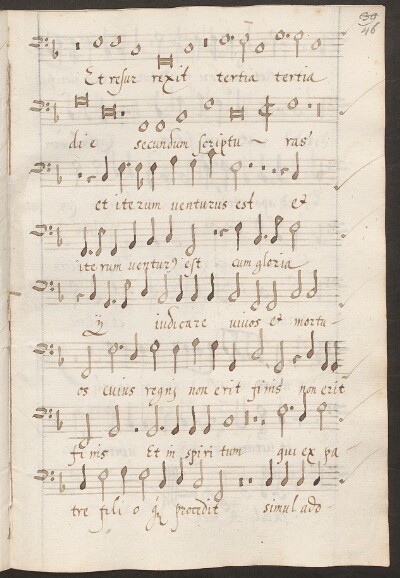 39
46
Et resur rexit tertia tertia
di e secundum scriptu ~ ras
et iterum venturus est et
iterum ventur9 est cum gloria
ij iudicare vivos et mortu -
os cuius regnj non erit finis non erit
finis Et in spiri tum qui ex pa -
tre fili o q; procedit simul ado -